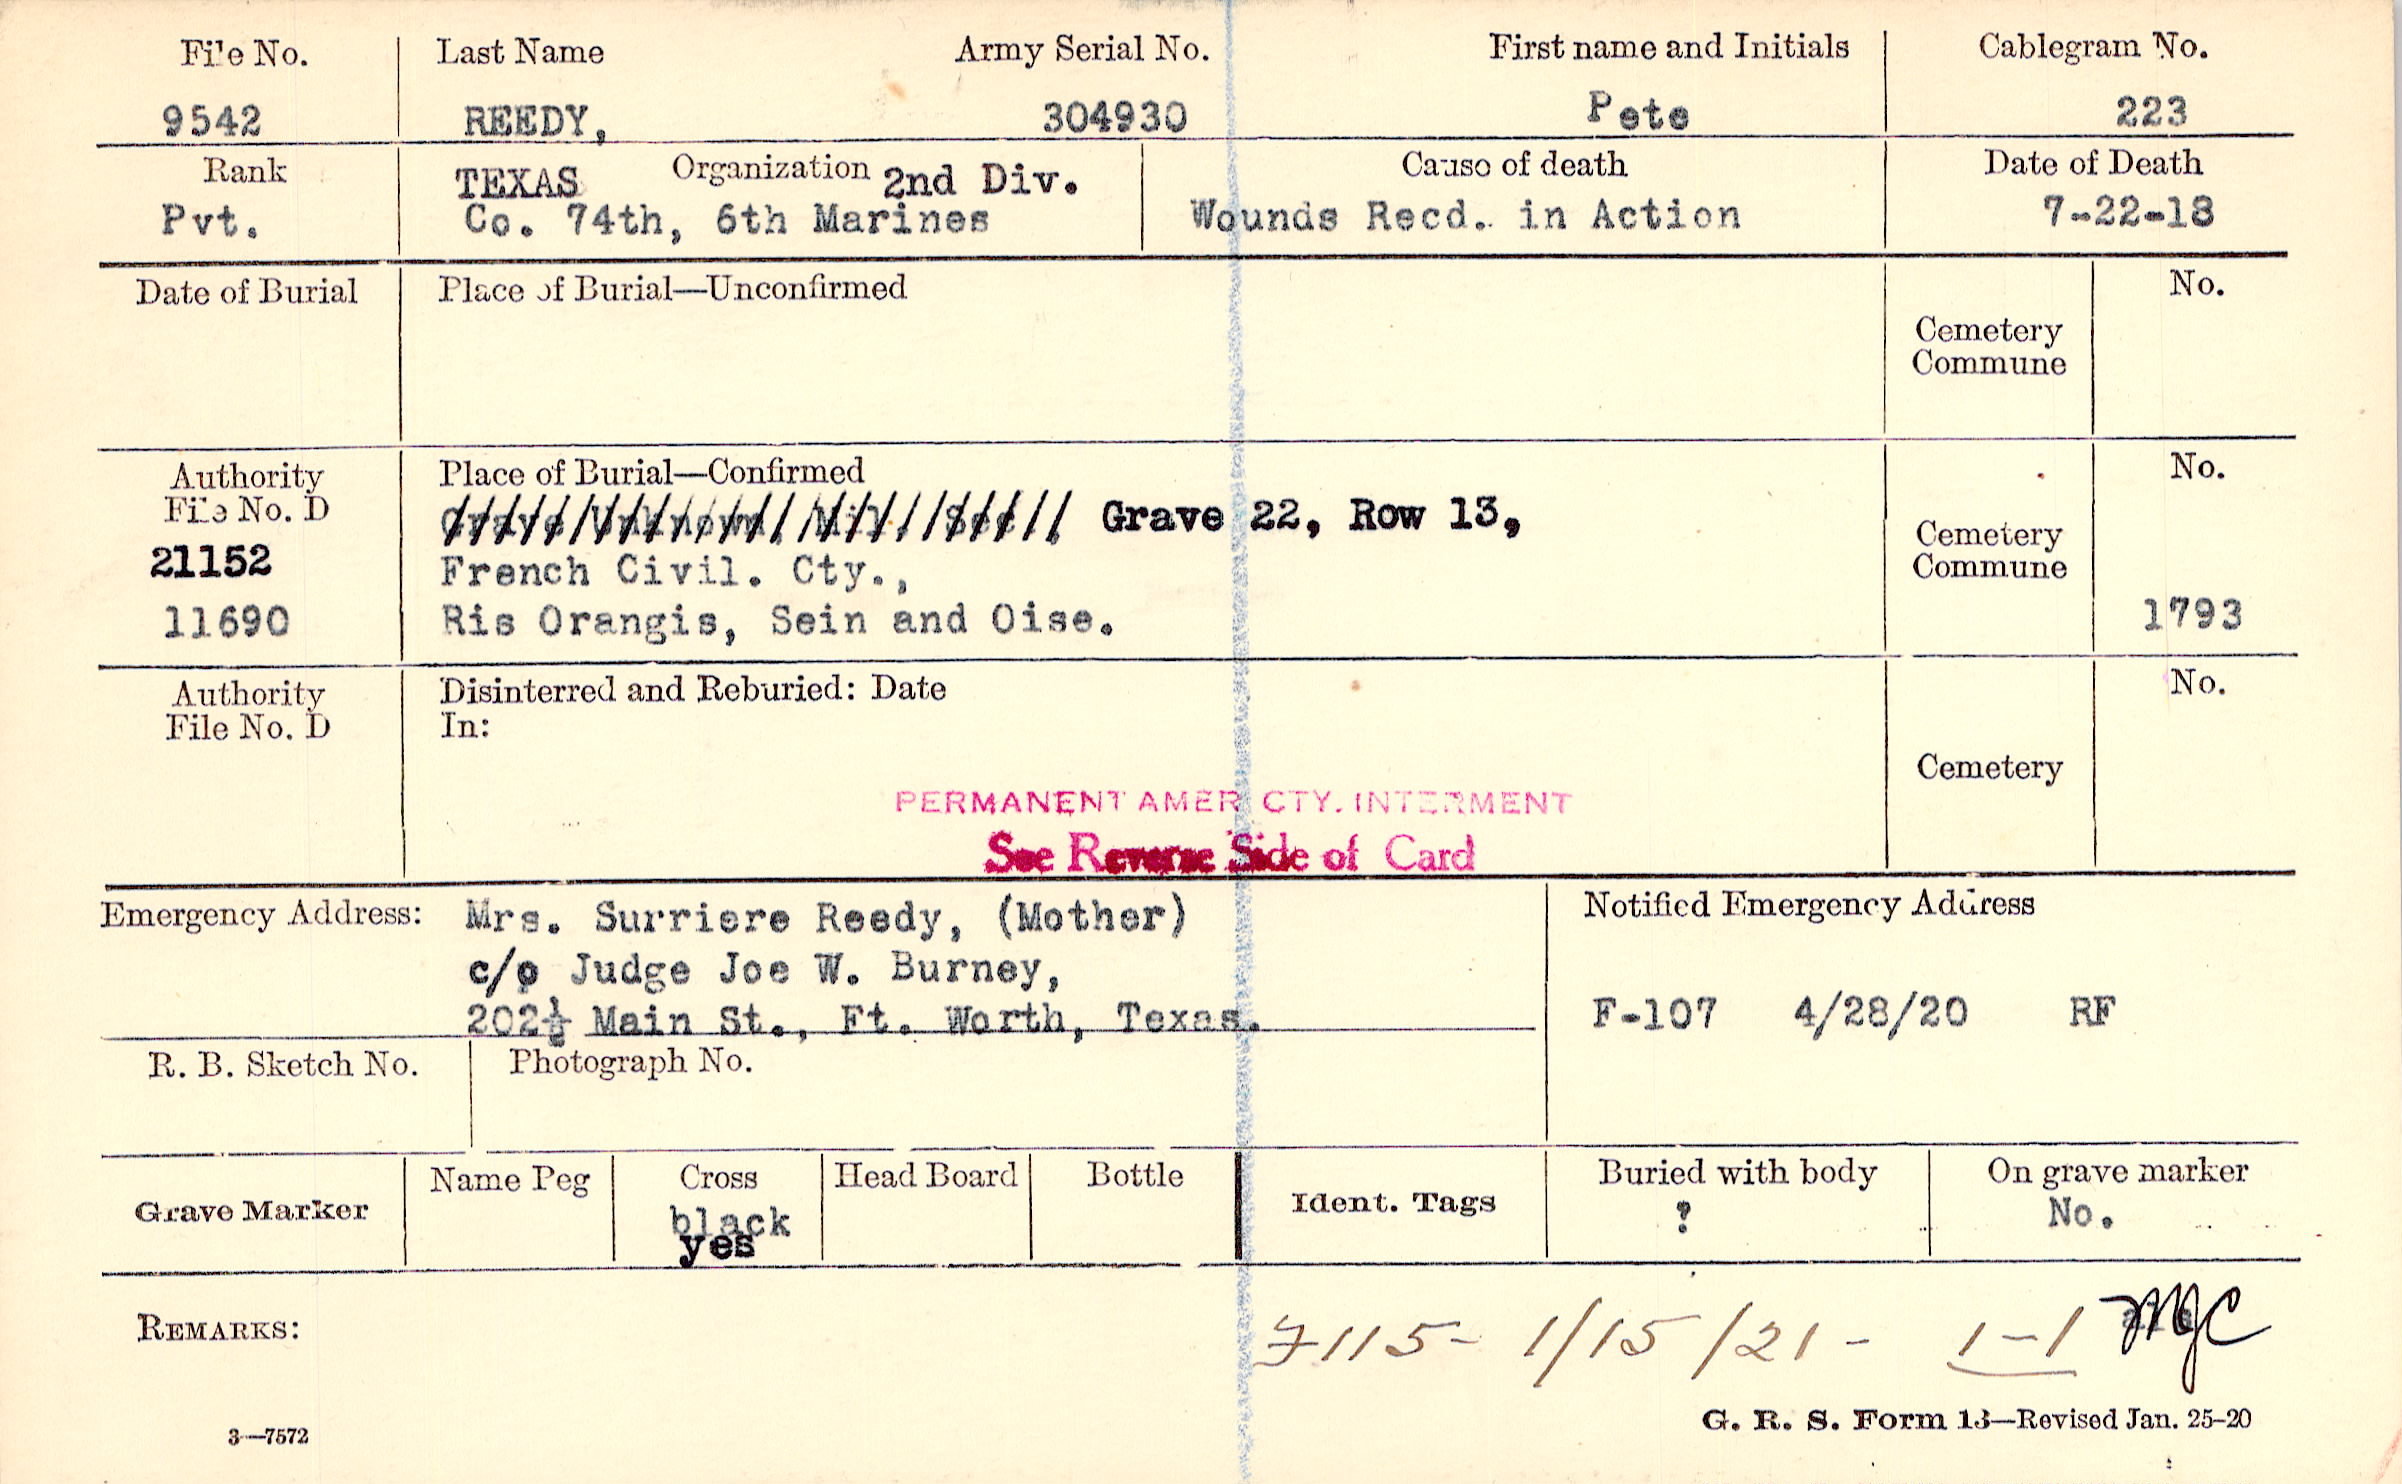 File No. Last Name Army Serial No. First name and Initials Cablegram No.
9542 REEDY, 304930 Pete 223
Rank TEXAS Organization 2nd Div. Cause of death Date of Death
Pvt. Co. 74th, 6th Marines Wounds Recd. in Action 7-22-18
Date of Burial Place of Burial—Unconfirmed No.
Cemetery
Commune
Authority Place of Burial—Confirmed No.
File No. D Grave Unknown, Mil. Sec., Grave 22, Row 13,
21152 French Civil. Cty., Cemetery
Commune
11690 Ris Orangis, Sein and Oise. 1793
Authority Disinterred and Reburied: Date No.
File No. D In:
Cemetery
PERMANENT AMER CTY. INTERMENT
See Reverse Side of Card
Emergency Address: Mrs. Surriere Reedy, (Mother) Notified Emergency Address
c/o Judge Joe W. Burney,
202½ Main St., Ft. Worth, Texas. F-107 4/28/20 RF
R. B. Sketch No. Photograph No.
Grave Marker Name Peg Cross Head Board Bottle Ident. Tags Buried with body On grave marker
black ? No.
yes
REMARKS: F115- 1/15/21- 1-1 MJC
3—7572 G. R. S. Form 13—Revised Jan. 25-20